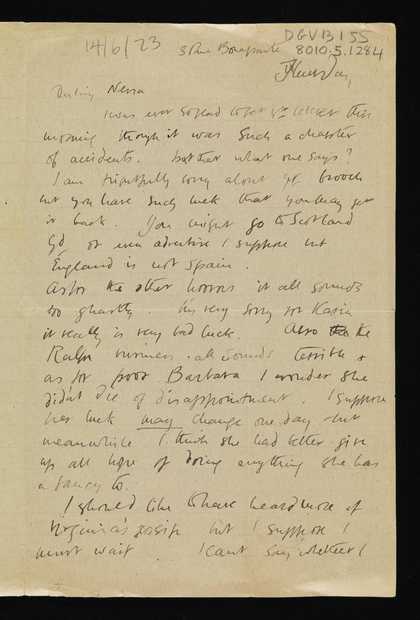 14/6/23
3 Rue Bonaparte
DGVB155
8010.5.1284
Thursday
Darling Nessa
I was ever so glad to get yr letter this
morning though it was such a chapter
of accidents. but then what one says?
I am frightfully sorry about yr brooch
but you have such luck that you may get
it back. You might go to Scotland
Yd or even advertise I suppose but
England is not Spain.
As for the other horrors it all sounds
too ghastly. I'm very sorry for Karin
it really is very bad luck. Also the
Ralph business all sounds terrible &
as for poor Barbara I wonder she
didn't die of disappointment. I suppose
her luck may change one day but
meanwhile I think she had better give
up all hope of doing anything she has
a fancy to.
I should like to have heard more of
Virginia's gossip but I suppose I
must wait. I can't say whether I